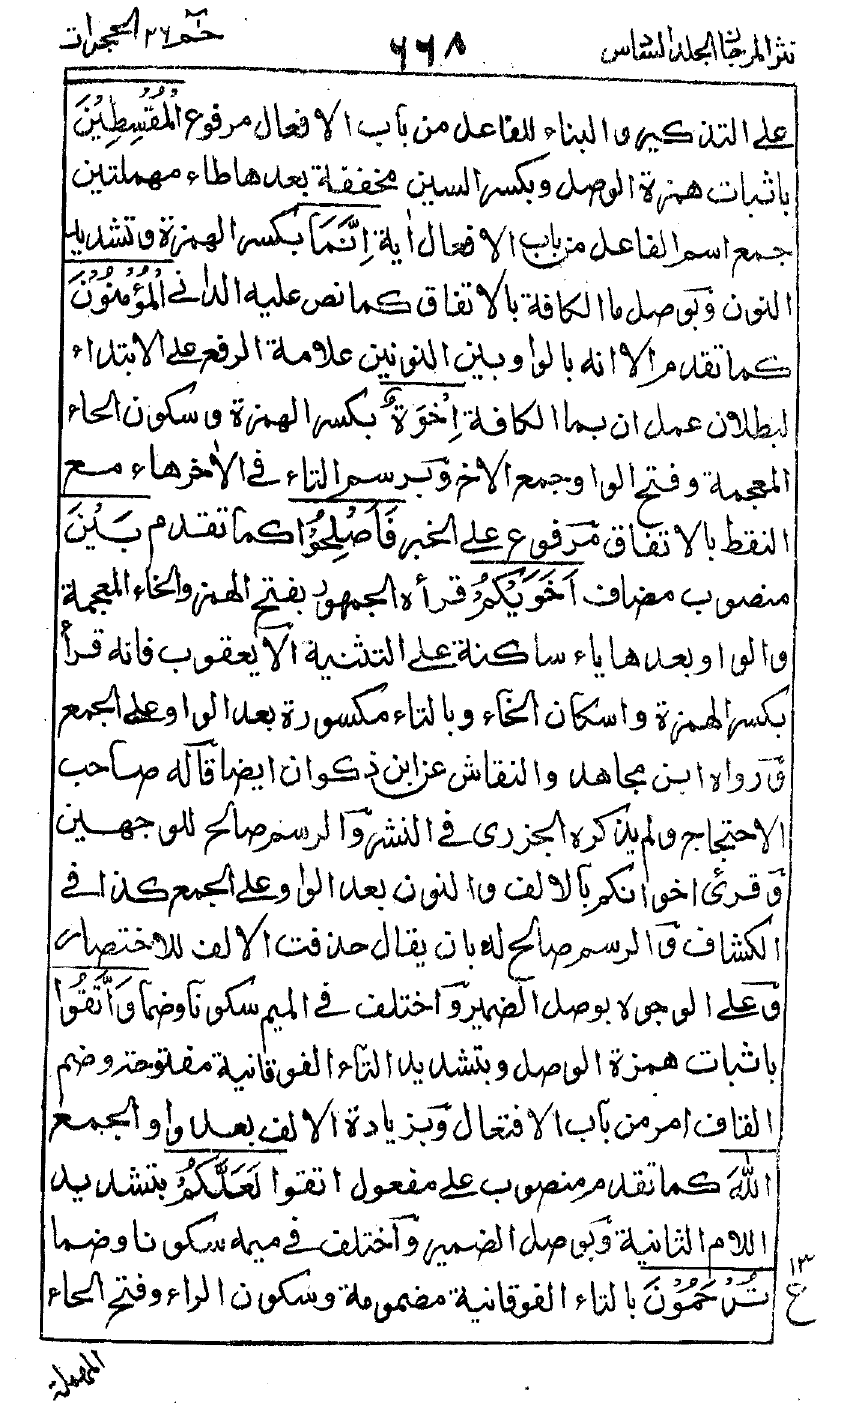 نثر المرجان الجلد السادس
٦٦٨
حٰم ٢٦ الحجرات
على التذكير والبناء للفاعل من باب الافعال مرفوع الْمُقْسِطِيْنَ
باثبات همزة الوصل وبكسر السين مخففة بعدها طاء مهملتين
جمع اسم الفاعل من باب الافعال اٰية اِنَّمَا بكسر الهمزة وتشديد
النون وبوصل ما الكافة بالاتفاق كما نص عليه الدانى الْمُؤْمِنُوْنَ
كما تقدم الا انه بالواو بين النونين علامة الرفع على الابتداء
لبطلان عمل ان بما الكافة اِخْوَةٌ بكسر الهمزة وسكون الخاء
المعجمة وفتح الواو جمع الاخ وبرسم التاء فى الاٰخر هاء مع
النقط بالاتفاق مرفوع على الخبر فَاَصْلِحُوْا كما تقدم بَيْنَ
منصوب مضاف اَخَوَيْكُمْ قرأه الجمهور بفتح الهمز والخاء المعجمة
والواو بعدها ياء ساكنة على التثنية الا يعقوب فانه قرأ
بكسر الهمزة واسكان الخاء وبالتاء مكسورة بعد الواو على الجمع
ورواه ابن مجاهد والنقاش عن ابن ذكوان ايضا قاله صاحب
الاحتجاج ولم يذكره الجزرى فى النشر والرسم صالح للوجهين
وقرئ اخوانكم بالالف والنون بعد الواو على الجمع كذا فى
الكشاف والرسم صالح له بان يقال حذفت الالف للاختصار
وعلى الوجوه بوصل الضمير واختلف فى الميم سكونا وضما وَاتَّقُوا
باثبات همزة الوصل وبتشديد التاء الفوقانية مفتوحة وضم
القاف امر من باب الافتعال وبزيادة الالف بعد واو الجمع
اللّٰهَ كما تقدم منصوب على مفعول اتقوا لَعَلَّكُمْ بتشديد
اللام الثانية وبوصل الضمير واختلف فى ميمه سكونا وضما
تُرْحَمُوْنَ بالتاء الفوقانية مضمومة وسكون الراء وفتح الحاء
١٣
ع
المهملة